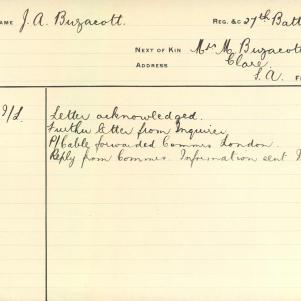 NAME J. A. Buzacott. REG. &C 27th Batt
NEXT OF KIN Mrs M. Buzacott
ADDRESS Clare.
S. A.
Letter acknowledged.
Further letter from Inquirer
P/Cable forwarded Commrs London.
Reply from Commrs. Information sent